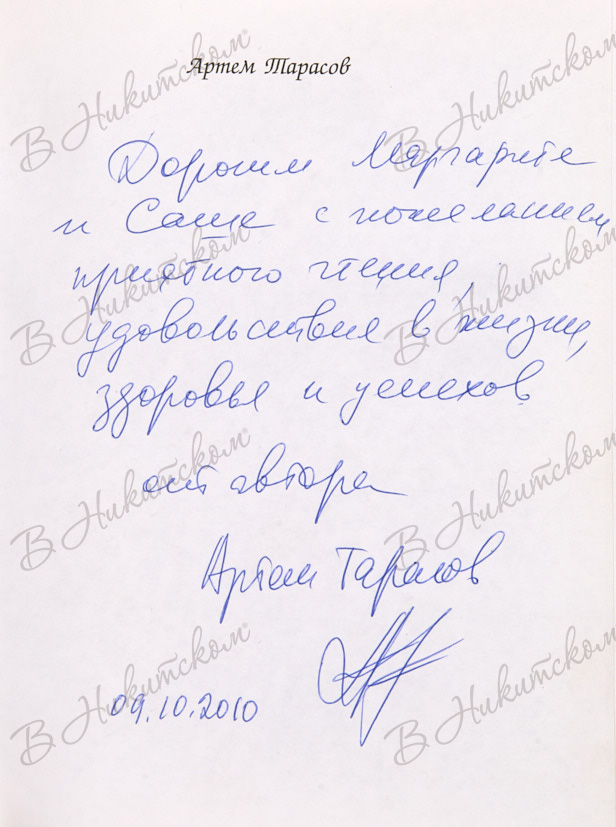 Артем Тарасов
Дорогим Маргарите
и Саше с пожеланием
приятного чтения,
удовольствия в жизни,
здоровья и успехов
от автора
Артем Тарасов
09.10.2010
В Никитском
В Никитском
В Никитском
В Никитском
В Никитском
В Никитском
В Никитском
В Никитском